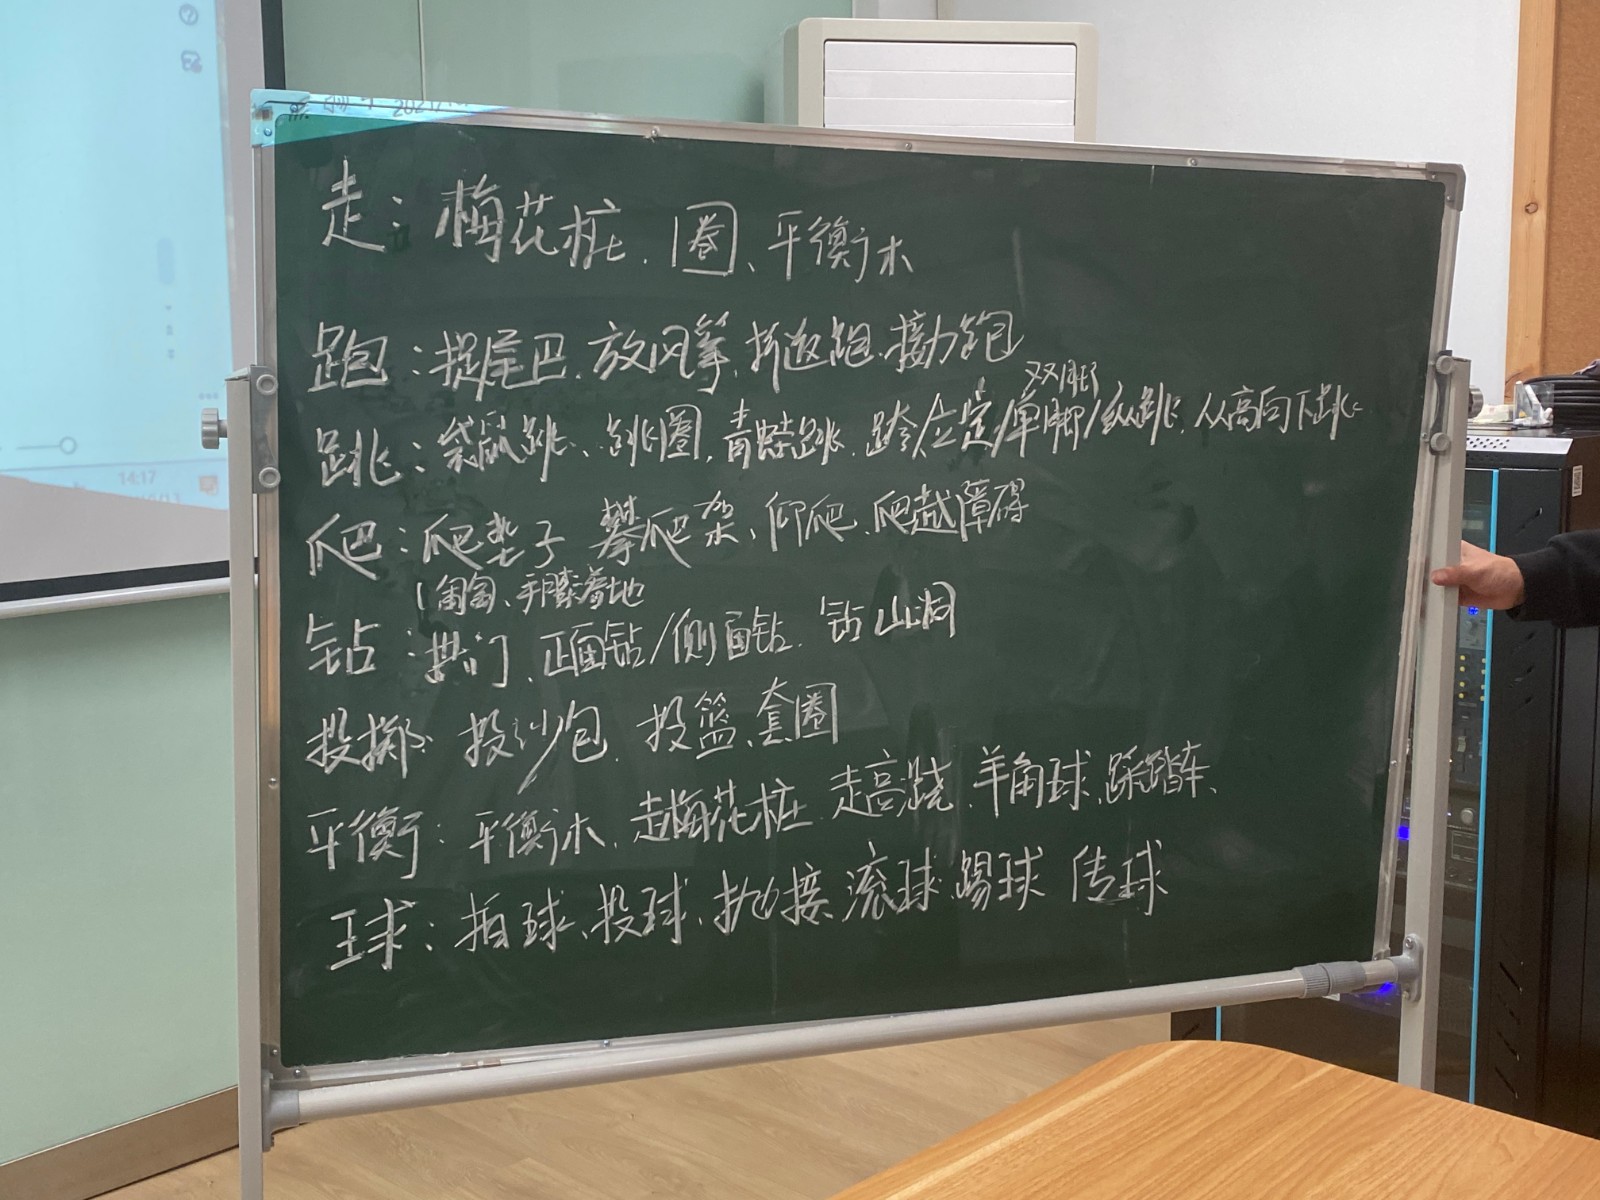 14:17
走：梅花桩、圈、平衡木
跑：捉尾巴、放风筝、折返跑、接力跑
双脚
跳：袋鼠跳、跳圈、青蛙跳、跨/立定/单脚/纵跳、从高向下跳
爬：爬垫子 攀爬架、仰爬、爬越障碍
(匍匐、手膝着地
钻：拱门、正面钻/侧面钻、钻山洞
投掷：投沙包、投篮、套圈
平衡：平衡木、走梅花桩、走高跷、羊角球、踩踏车、
球：拍球、投球、抛接、滚球、踢球 传球